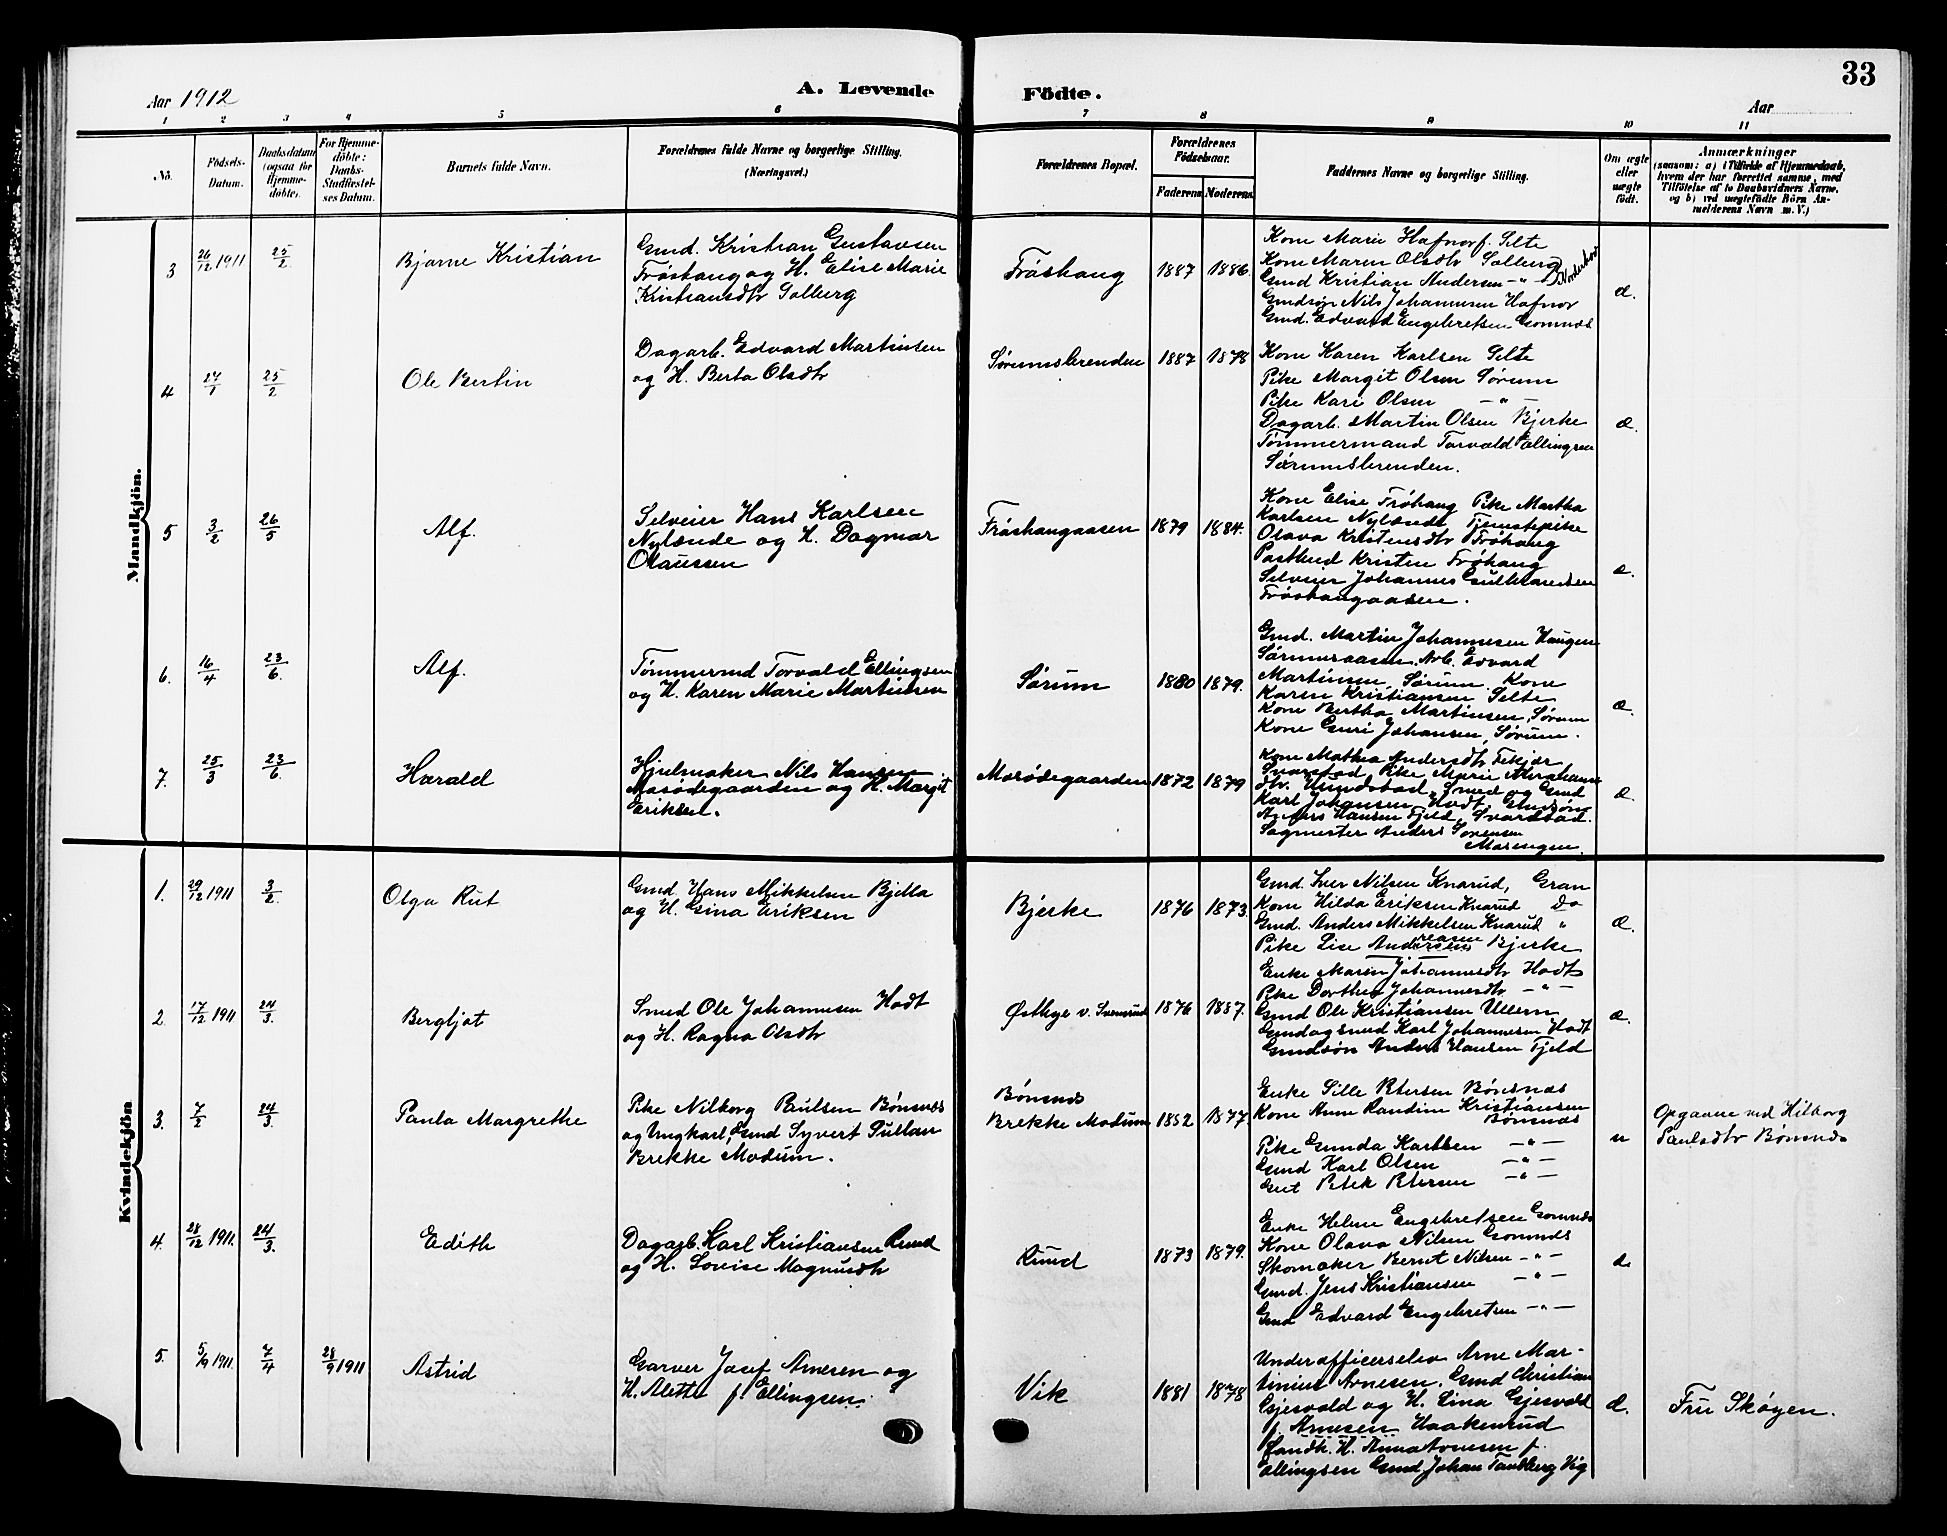 33
Aar 1912
A. Levende
Födte.
Aar
1 2 3 4 5 6 7 8 9 10 11
No.
Födsels-
Datum.
Daabsdatum
(ogsaa for
Hjemme-
döbte).
For Hjemme-
döbte:
Daabs-
Stadfæstel-
ses Datum.
Barnets fulde Navn.
Forældrenes fulde Navne og borgerlige Stilling.
(Næringsvei.)
Forældrenes Bopæl.
Forældrenes
Födselsaar.
Faderens Moderens
Faddernes Navne og borgerlige Stilling.
Om ægte
eller
uægte
födt.
Anmærkninger
(saasom: a) i Tilfælde af Hjemmedaab,
hvem der har forrettet samme, med
Tilföielse af to Daabsvidners Navne.
og b) ved uægtefödte Börn An-
melderens Navn m. V.)
Mandkjön.
3 26/12 1911 25/2
Bjarne Kristian
Gmd. Kristian Gustavsen
Frøshaug og H. Elise Marie
Kristiansdtr Solberg
Frøshaug
1887 1886.
Kone Marie Hafnor f. Selte
Kone Maren Olsdtr Solberg
Gmd Kristian Andersen -"-
Gmdsøn Nils Johannesen Hafnor
Gmd. Edvard Engebretsen Gomnæs
æ.
4 27/1 25/2
Ole Bertin
Dagarb. Edvard Martinsen
og H. Berta Olsdtr
Sørumsbrenden
1887 1878
Kone Karen Karlsen Selte
Pike Margit Olsen Sørum
Pike Kari Olsen -"-
Dagarb. Martin Olsen Bjerke
Tømmermand Torvald Ellingsen
Sørumsbrenden.
æ.
5 3/2 26/5
Alf.
Selveier Hans Karlsen
Nylænde og H. Dagmar
Olaussen
Frøshaugaasen
1879 1884.
Kone Elise Frøhaug Pike Martha
Karlsen Nylænde, Tjenstepike
Olava Kristensdtr Frøhaug
Postbud Kristen Frøhaug
Selveier Johannes Gulbrandsen
Frøshaugaasen.
æ.
6. 16/4 23/6.
Alf.
Tømmermd Torvald Ellingsen
og H. Karen Marie Martinsen
Sørum
1880 1879.
Gmd. Martin Johannesen Haugen
Sørumsaasen. Arb. Edvard
Martinsen Sørum. Kone
Karen Kristiansen Selte
Kone Bertha Martinsen, Sørum
Kone Guri Johansen, Sørum.
æ.
7. 25/3 23/6.
Harald
Hjulmaker Nils Hansen
Mosødegaarden og H. Margit
Eriksen.
Mosødegaarden
1872 1879
Kone Mathea Andersdtr Fekjær
Svarstad, Pike Marie Abrahams
dtr. Hundstad, Smed og Gmd
Karl Johansen Hodt, Gmdsøn
Anders Hansen Fjeld, Svarstad.
Sagmester Anders Sørensen
Morengen.
æ.
Kvindekjön
1. 29/12 1911 3/2.
Olga Rut
Gmd. Hans Mikkelsen Bjella
og H. Gina Eriksen
Bjerke
1876 1873.
Gmd. Iver Nilsen Knarud, Gran
Kone Hilda Eriksen Knarud do
Gmd. Anders Mikkelsen Knarud "
Pike Lise Andreasen Bjerke
æ.
2. 17/12 1911 24/3.
Bergljot
Smed Ole Johannesen Hodt
og H. Ragna Olsdtr
Østbye v. Svensrud
1876 1887.
Enke Maren Johannesdtr Hodt
Pike Dorthea Johannesdtr -"-
Gmd Ole Kristiansen Ullern
Gmd og smed Karl Johannesen Hodt
Gmdsøn Anders Hansen Fjeld
æ.
3. 7/2 24/3.
Paula Margrethe
Pike Hilborg Paulsen Bønsnæs
og Ungkarl, Gmd Syvert
Brekke Modum.
Bønsnæs
Brekke Modum
1852 1877.
Enke Sille Petersen Bønsnæs
Kone Anne Randine Kristiansen
Bønsnæs
Pike Gunda Karlsen -"-
Gmd Karl Olsen -"-
Gut Peter Petersen -"-
u
Opgaave ved Hilborg
Paulsdtr Bønsnæs
4. 28/12 1911. 24/3.
Edith
Dagarb. Karl Kristiansen Rund
og H. Lovise Magnusdtr
Rund
1873 1879.
Enke Helene Engebretsen Gomnæs
Kone Olava Nilsen Gomnæs
Skomaker Bernt Nilsen -"-
Gmd. Jens Kristiansen -"-
Gmd Edvard Engebretsen -"-
æ
5. 5/9 1911. 7/4 28/9 1911
Astrid
Garver Josef Arnesen og
H. Alette f. Ellingsen.
Vik
1881 1878
Underofficerselev Arne Mar-
tinius Arnesen, Gmd Christian
Gjesvold og H. Lina Gjesvold
f. Arnesen Haakenrud
Landh. H. Anna Arnesen f.
Ellingsen Gmd Johan Tandberg Vig
æ.
Fru Skøyen.